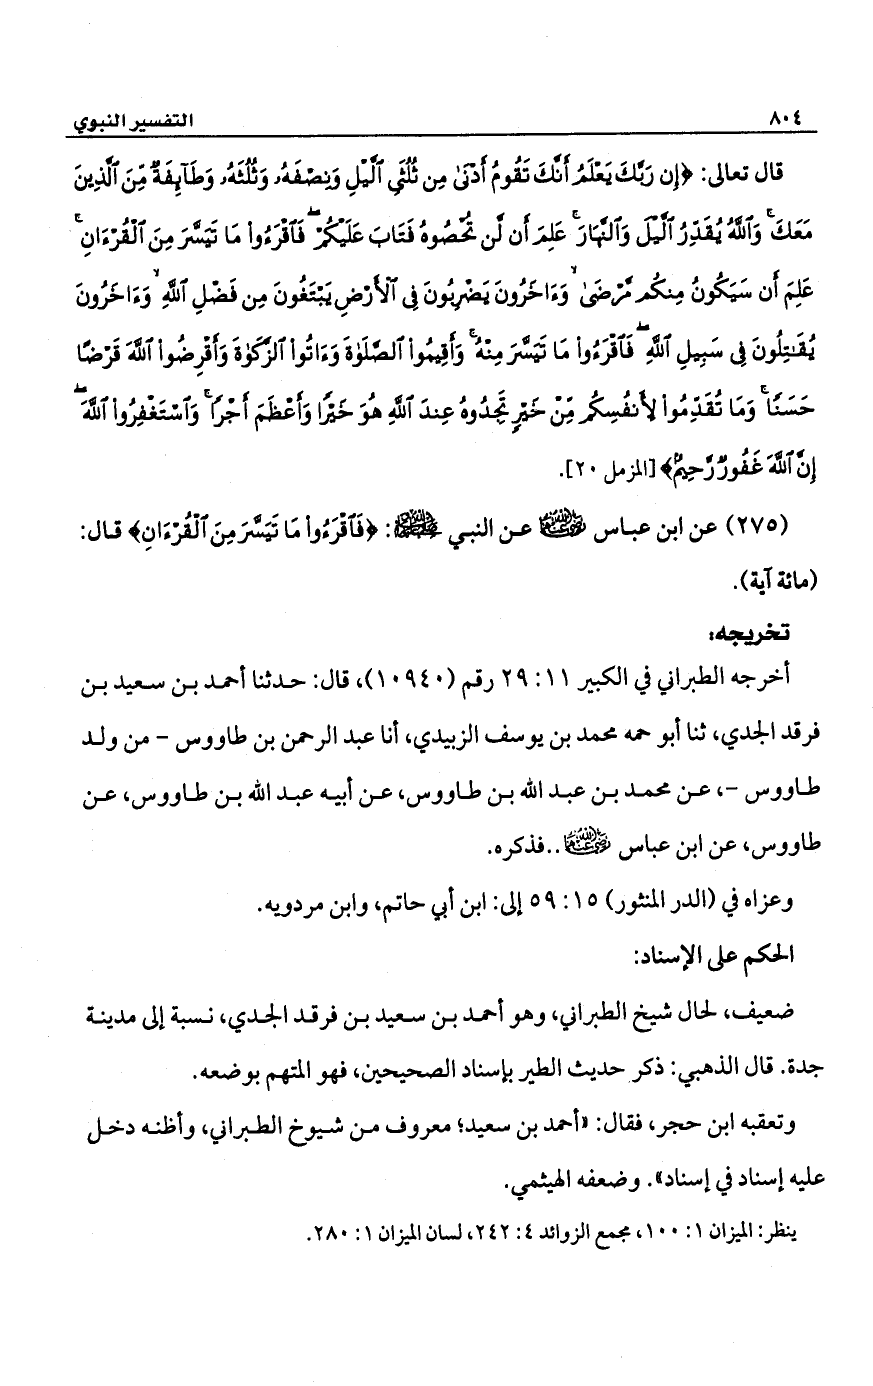 ٨٠٤ التفسير النبوي
قال تعالى: ﴿إِن رَبَّكَ يَعْلَمُ أَنَّكَ تَقُومُ أَدْنَىٰ مِن ثُلُثَيِ ٱلَّيْلِ وَنِصْفَهُۥ وَثُلُثَهُۥ وَطَآئِفَةٌ مِّنَ ٱلَّذِينَ
مَعَكَ ۚ وَٱللَّهُ يُقَدِّرُ ٱلَّيْلَ وَٱلنَّهَارَ ۚ عَلِمَ أَن لَّن تُحْصُوهُ فَتَابَ عَلَيْكُمْ ۖ فَٱقْرَءُوا۟ مَا تَيَسَّرَ مِنَ ٱلْقُرْءَانِ ۚ
عَلِمَ أَن سَيَكُونُ مِنكُم مَّرْضَىٰ ۙ وَءَاخَرُونَ يَضْرِبُونَ فِى ٱلْأَرْضِ يَبْتَغُونَ مِن فَضْلِ ٱللَّهِ ۙ وَءَاخَرُونَ
يُقَـٰتِلُونَ فِى سَبِيلِ ٱللَّهِ ۖ فَٱقْرَءُوا۟ مَا تَيَسَّرَ مِنْهُ ۚ وَأَقِيمُوا۟ ٱلصَّلَوٰةَ وَءَاتُوا۟ ٱلزَّكَوٰةَ وَأَقْرِضُوا۟ ٱللَّهَ قَرْضًا
حَسَنًا ۚ وَمَا تُقَدِّمُوا۟ لِأَنفُسِكُم مِّنْ خَيْرٍ تَجِدُوهُ عِندَ ٱللَّهِ هُوَ خَيْرًا وَأَعْظَمَ أَجْرًا ۚ وَٱسْتَغْفِرُوا۟ ٱللَّهَ ۖ
إِنَّ ٱللَّهَ غَفُورٌ رَّحِيمٌ﴾ [المزمل ٢٠].
(٢٧٥) عن ابن عباس رضي الله عنهما عن النبي ﷺ: ﴿فَٱقْرَءُوا۟ مَا تَيَسَّرَ مِنَ ٱلْقُرْءَانِ﴾ قال:
(مائة آية).
تخريجه:
أخرجه الطبراني في الكبير ١١: ٢٩ رقم (١٠٩٤٠)، قال: حدثنا أحمد بن سعيد بن
فرقد الجدي، ثنا أبو حمه محمد بن يوسف الزبيدي، أنا عبد الرحمن بن طاووس - من ولد
طاووس -، عن محمد بن عبد الله بن طاووس، عن أبيه عبد الله بن طاووس، عن
طاووس، عن ابن عباس رضي الله عنهما ..فذكره.
وعزاه في (الدر المنثور) ١٥: ٥٩ إلى: ابن أبي حاتم، وابن مردويه.
الحكم على الإسناد:
ضعيف، لحال شيخ الطبراني، وهو أحمد بن سعيد بن فرقد الجدي، نسبة إلى مدينة
جدة. قال الذهبي: ذكر حديث الطير بإسناد الصحيحين، فهو المتهم بوضعه.
وتعقبه ابن حجر، فقال: «أحمد بن سعيد؛ معروف من شيوخ الطبراني، وأظنه دخل
عليه إسناد في إسناد». وضعفه الهيثمي.
ينظر: الميزان ١: ١٠٠، مجمع الزوائد ٤: ٢٤٢، لسان الميزان ١: ٢٨٠.